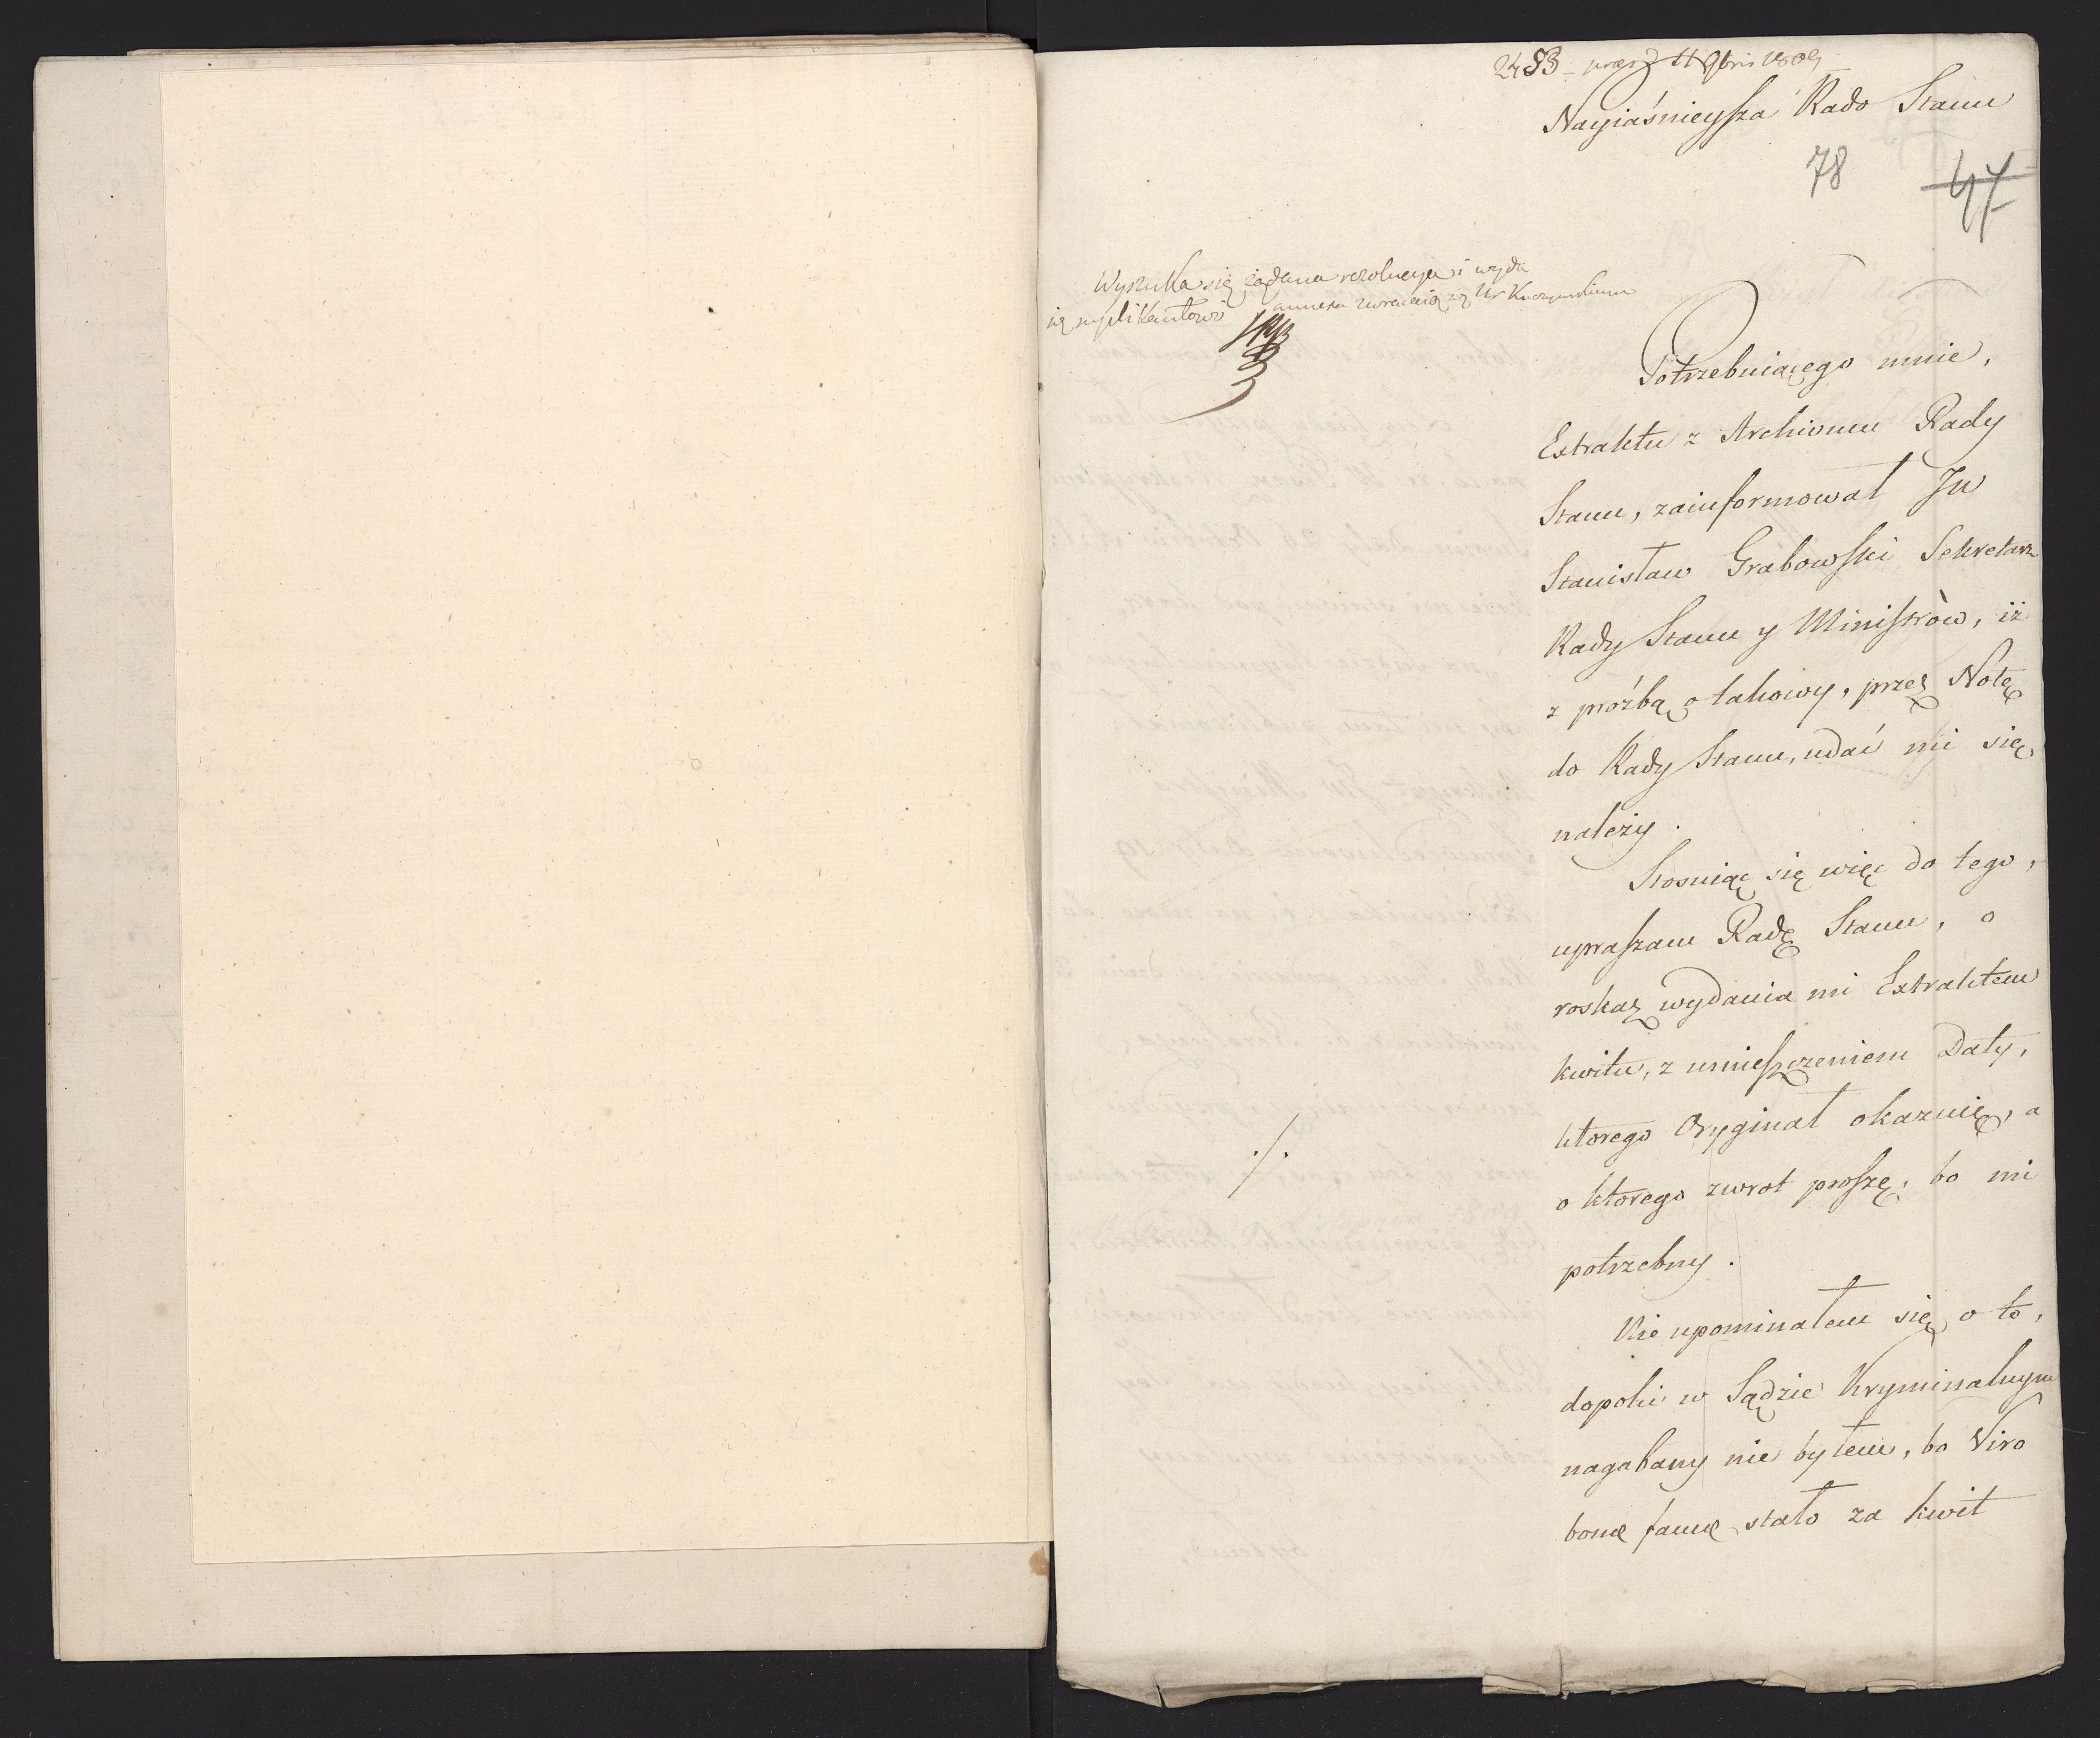 2453 - 11 9bris 1809
Nayiaśnieysza Rado Stanu
78 47
Wyszuka się żądana rezolucya i wyda
się suplikantowi annexa zwracaią się Ur
Potrzebuiącego mnie,
Extraktu z Archiwum Rady
Stanu, zainformował JW
Stanisław Grabowski Sekretarz
Rady Stanu y Ministròw, iż
z proźbą o takowy, przez Notę
do Rady Stanu, udać mi się
należy.
Stosuiąc się więc do tego,
upraszam Radę Stanu, o
roskaz wydania mi Extraktem
kwitu, z umieszczeniem Daty,
ktorego Oryginał okazuię, a
./.
o ktorego zwrot proszę, bo mi
potrzebny.
Nie upominałem się o to,
dopoki w Sądzie Kryminalnym
nagabany nie byłem, bo Viro
bonę famę stało za kwit